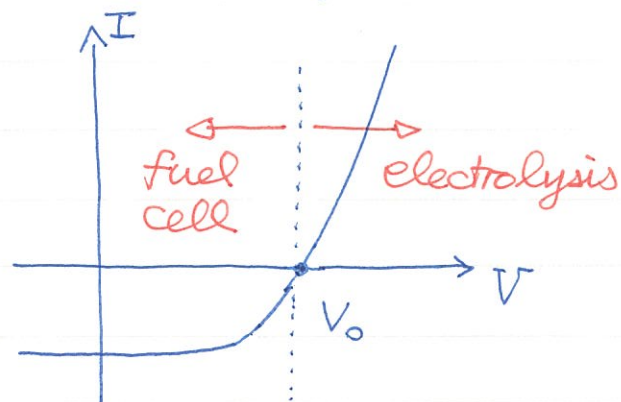 I
fuel
cell
electrolysis
V
V₀